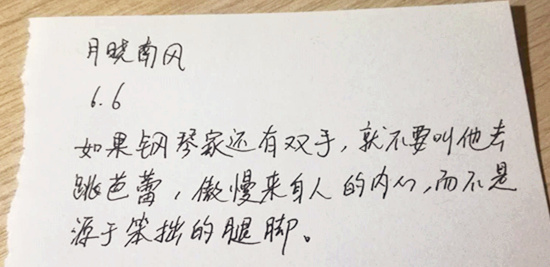 月晓南风
6.6
如果钢琴家还有双手，就不要叫他去
跳芭蕾，傲慢来自人的内心，而不是
源于笨拙的腿脚。